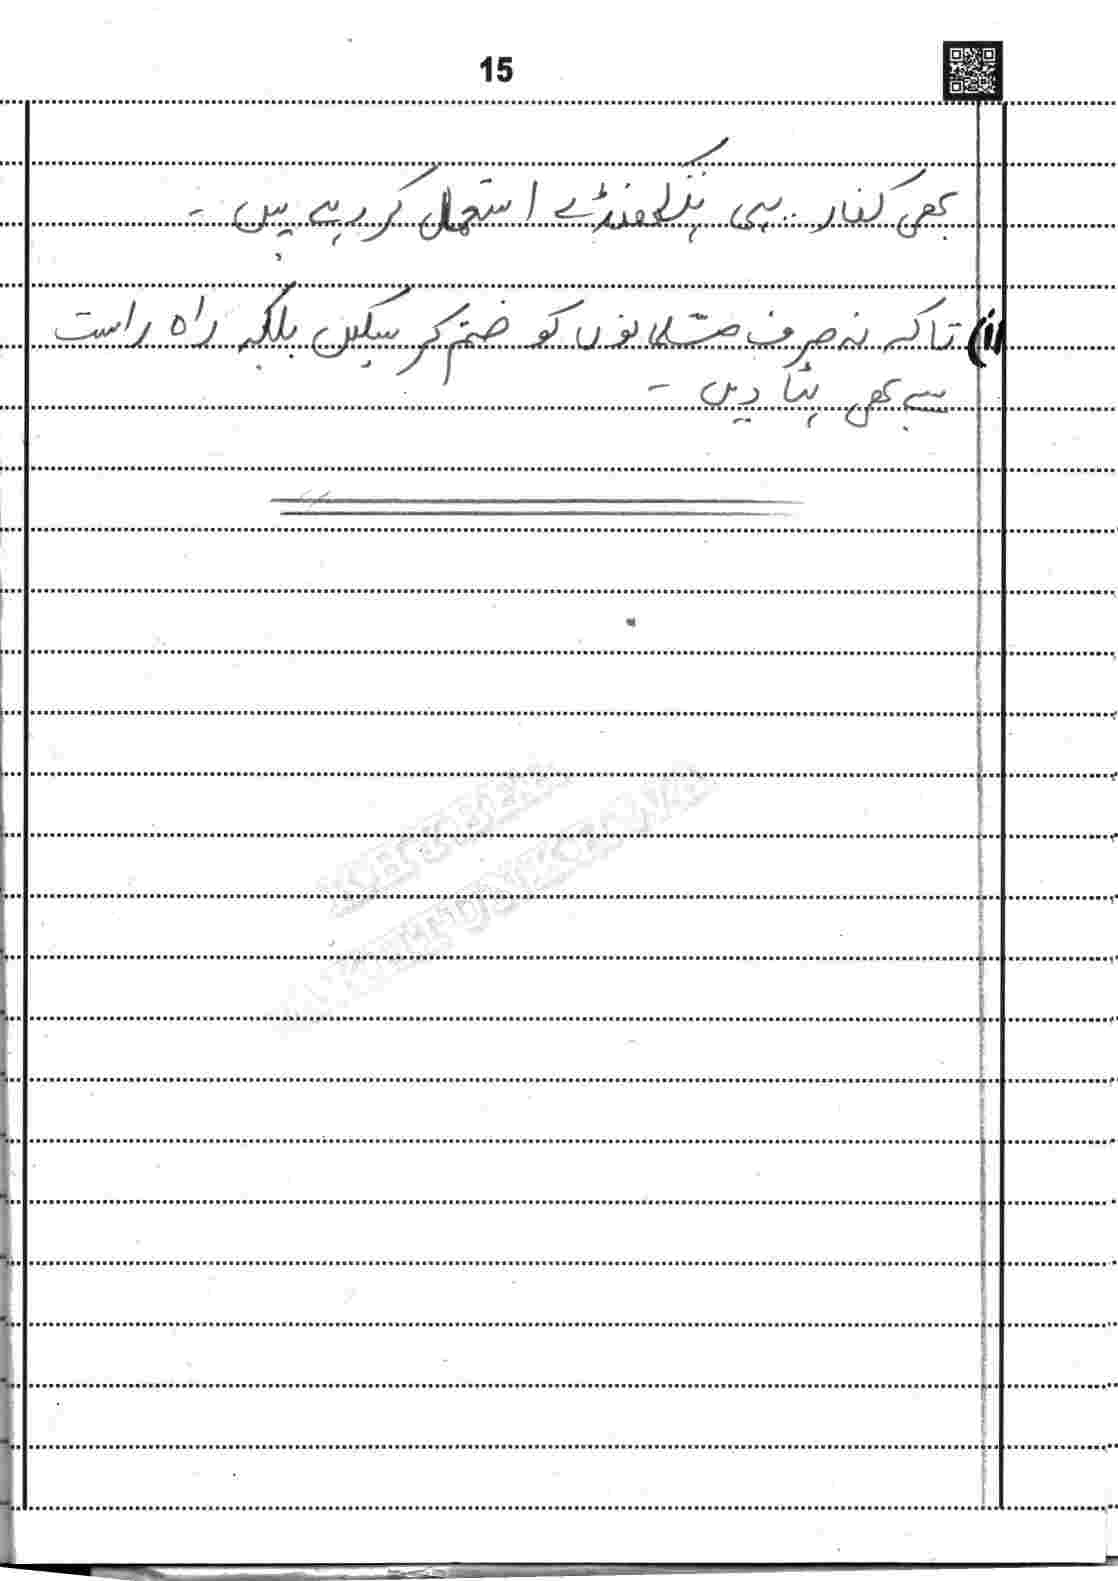 15
بھی کفار یہی ہتھکنڈے استعمال کر رہے ہیں ۔
(ii تاکہ نہ صرف مسلمانوں کو ختم کر سکیں بلکہ راہ راست
سے بھی ہٹا دیں ۔
KHYBER
PAKHTUNKHWA